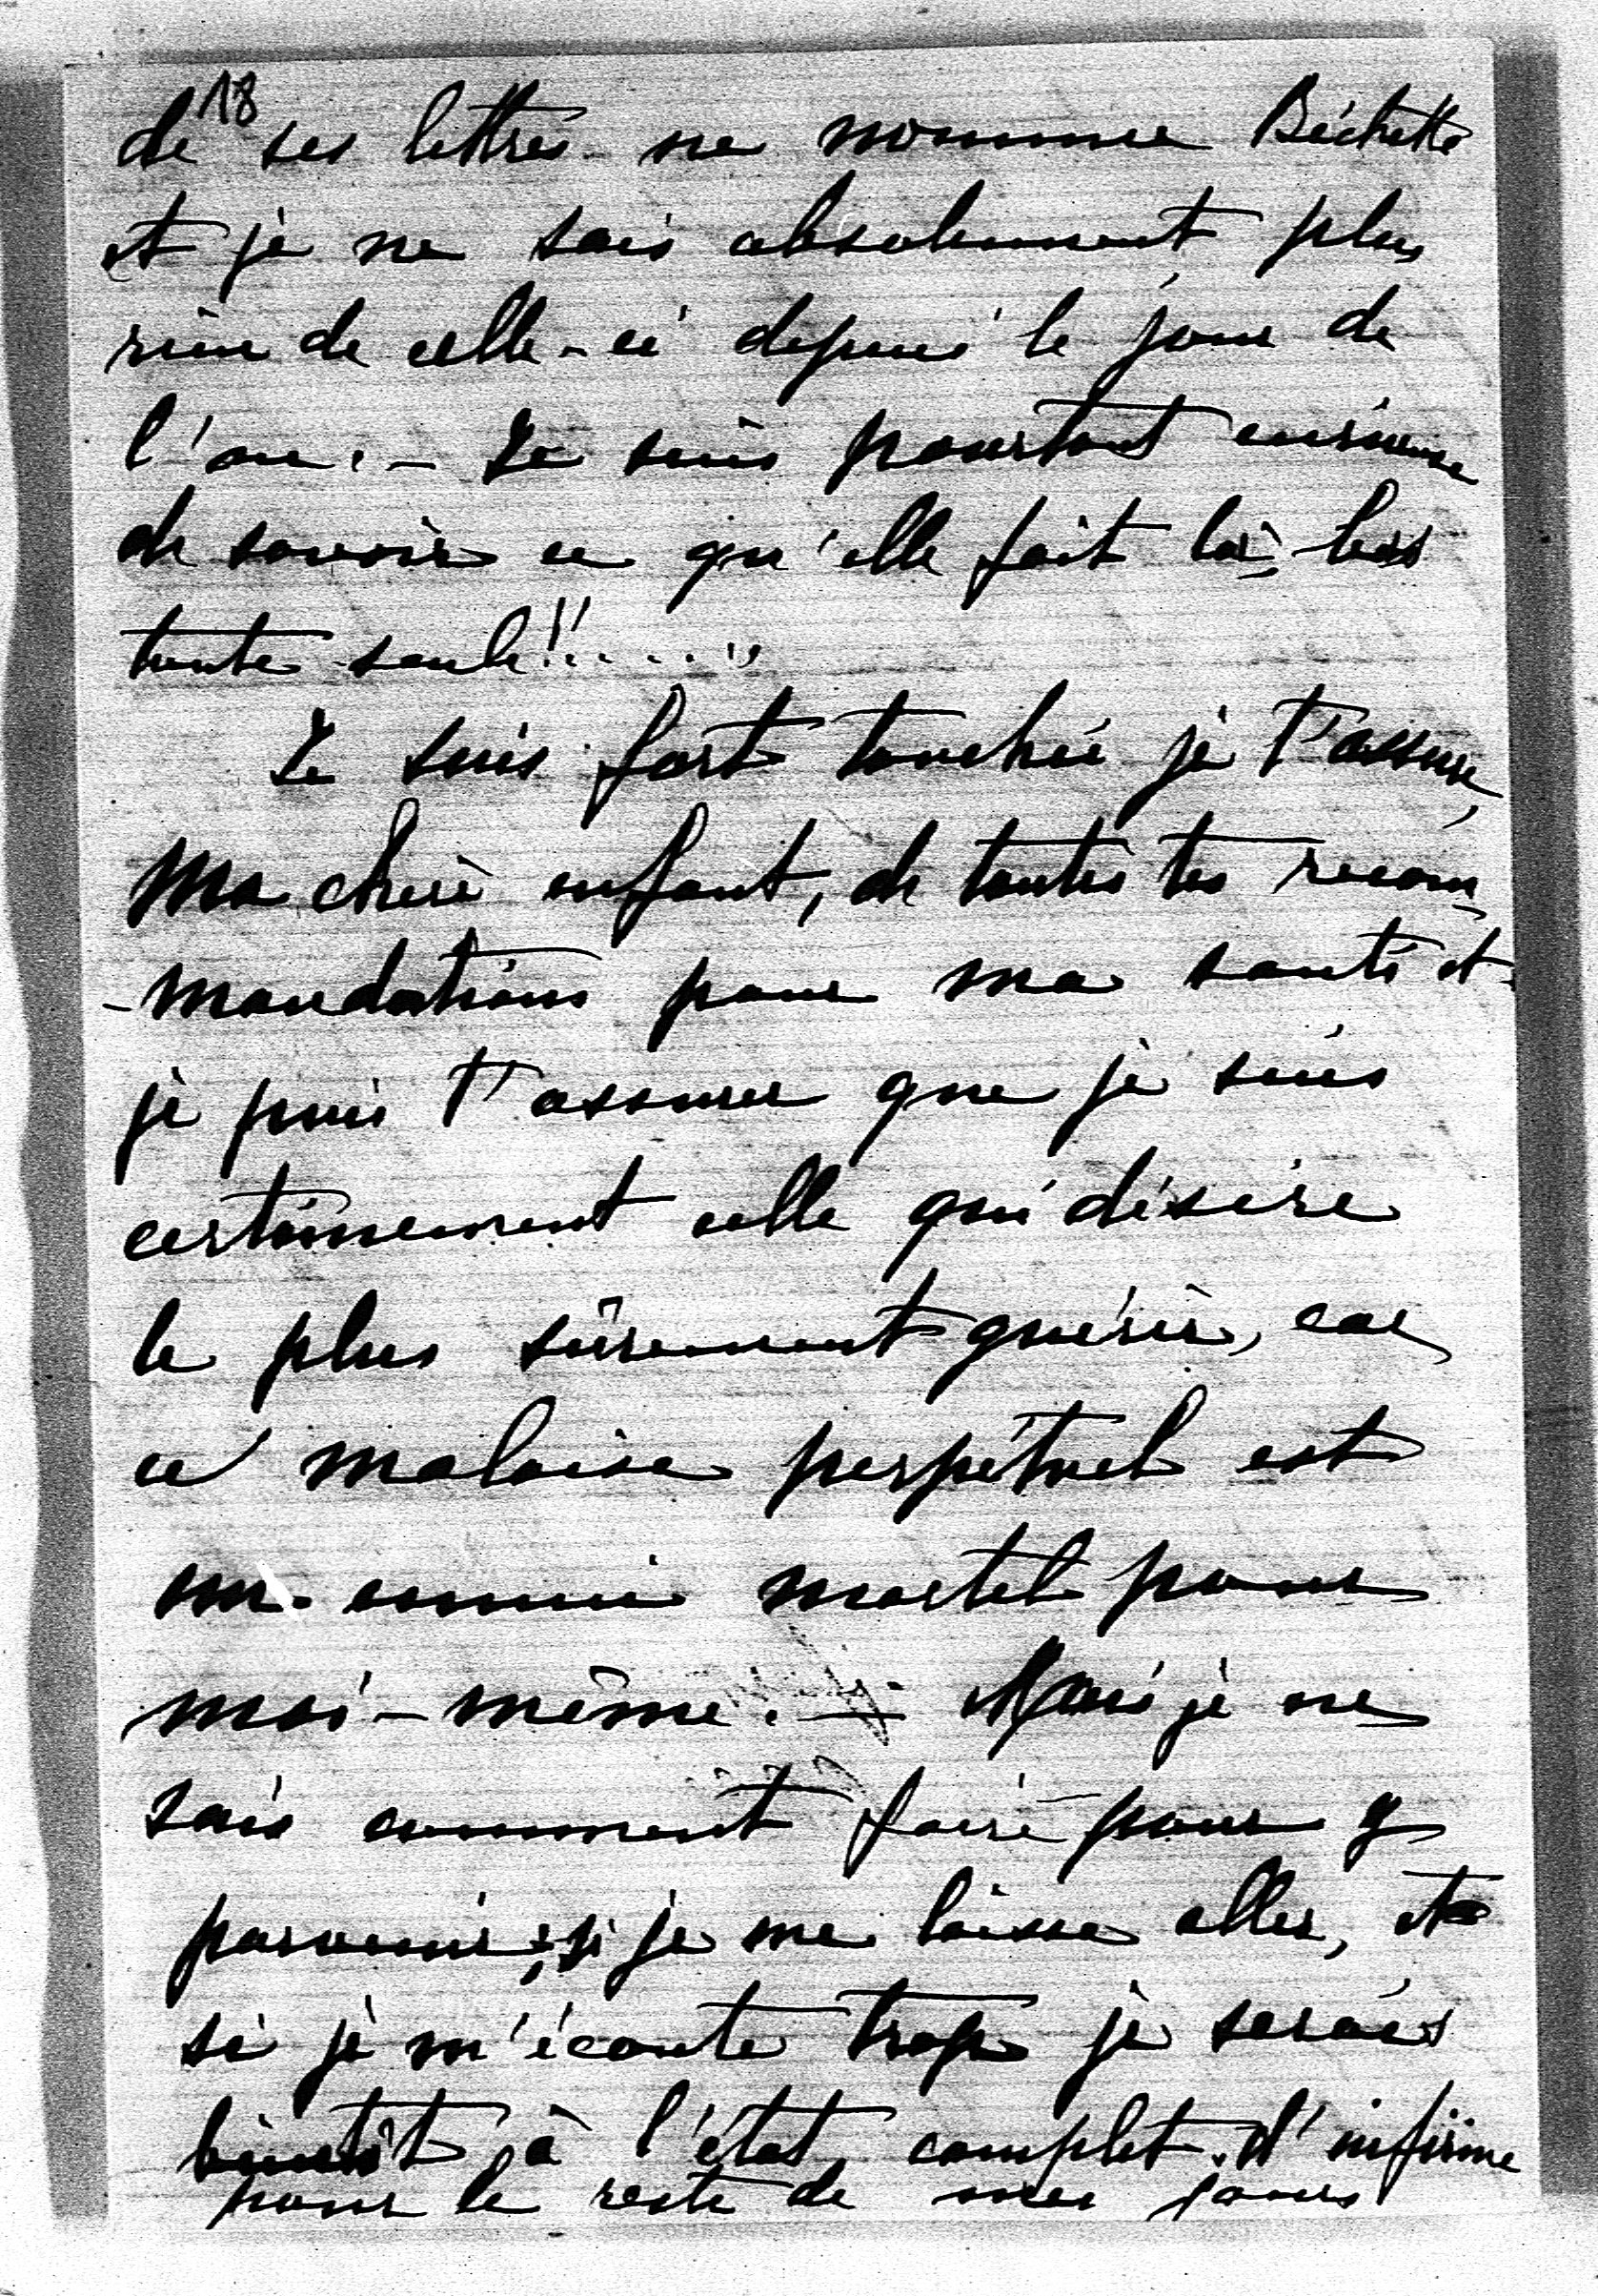 18
de ses lettres ne nomme Béchette
et je ne sais absolument plus
rien de celle-ci depuis le jour de
l'an. - Je suis pourtant curieuse
de savoir ce qu'elle fait là-bas
toute seule!!......
Je suis fort touchée je t'assure,
ma chère enfant, de toutes tes recom-
-mandations pour ma santé et
je puis t'assurer que je suis
certainement celle qui désire
le plus sûrement guérir, car
ce malaise perpétuel est
un ennui mortel pour
moi-même. - Mais je ne
sais comment faire pour y
parvenir; si je me laisse aller, et
si je m'écoute trop je serais
bientôt à l'état complet d'infirme
pour le reste de mes jours